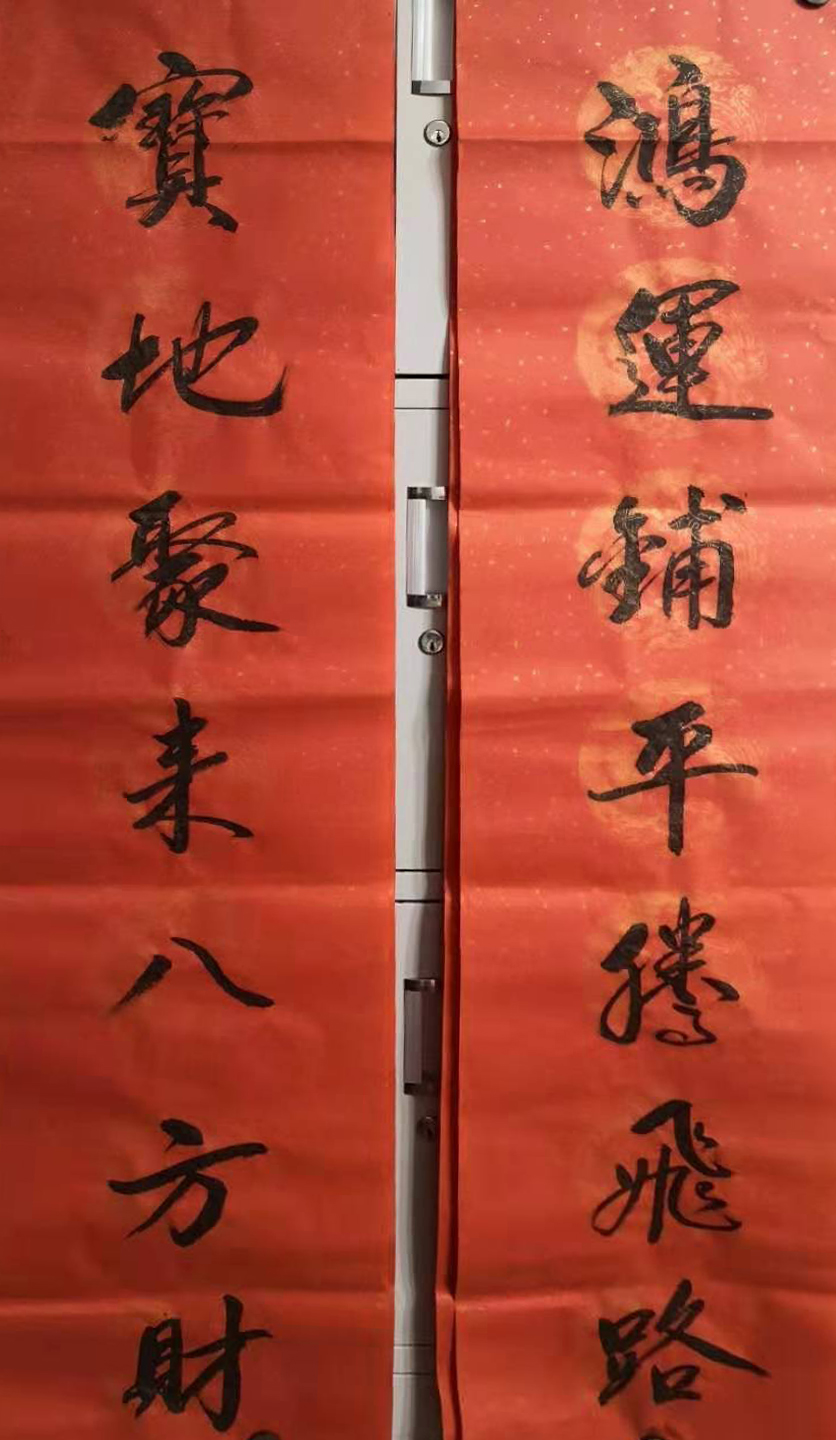 鴻運鋪平騰飛路
寶地聚來八方財